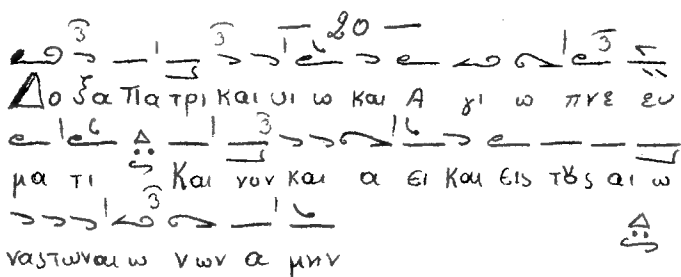 — 20 —
Δο ξα Πα τρι και υι ω και Α γι ω πνε ευ
μα τι και νυν και α ει και εις τȣς αι ω
νας των αι ω νων α μην